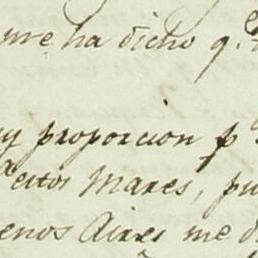 me ha dicho q.e
proporcion p.
estos Mares, pu
enos Aires me d